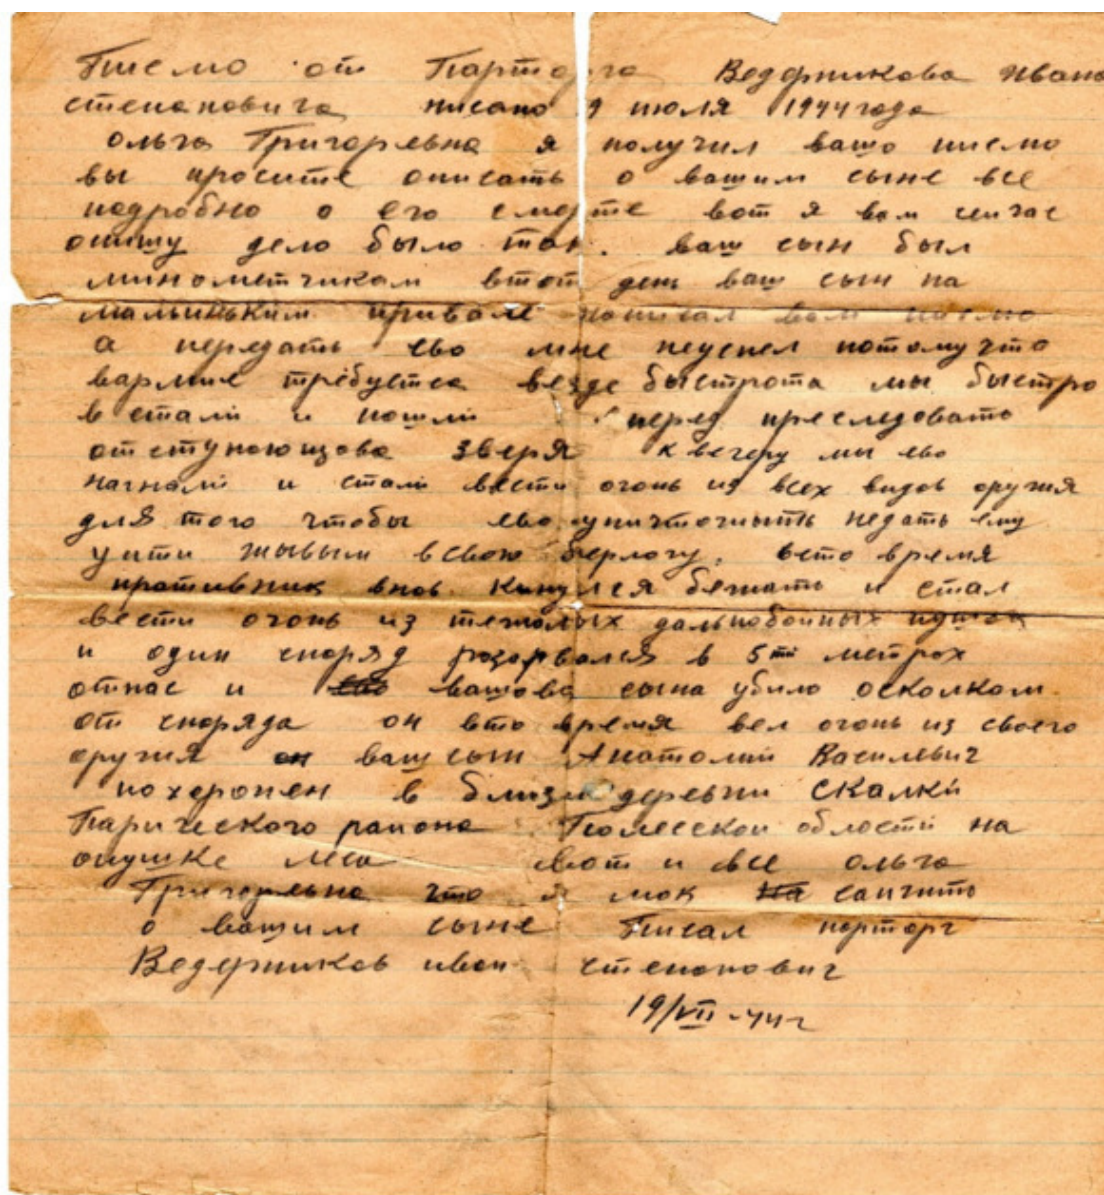 Писмо от Парторга Ведерникова Ивана
степановича писано 9 июля 1944 года
ольга Григорьевна я получил вашо писмо
вы просите описать о вашим сыне все
подробно о его смерте вот я вам сичас
опишу дело было так. ваш сын был
минометчикам втот день ваш сын на
мальиньким привале написал вам писмо
а передать ево мне неуспел потомучто
вармие требуетса везде быстрота мы быстро
встали и пошли вперед преследовать
отступающева зверя к вечеру мы ево
нагнали и стали вести огонь из всех видов оружия
для того чтобы ево уничтожить недать ему
уити живым в свою берлогу. вето время
противник внов кинулся бежать и стал
вести огонь из тежолых дальнобоиных пушек
и один сноряд розорвался в 5ти метрох
отнас и вашова сына убило осколком
от сноряда он вто время вел огонь из своего
оружия ваш сын Анатолий Василевич
похоронен в близи деревни Скалки
Паричского раиона Полесскои области на
опушке леса вот и все ольга
Григорьевна что я мок сапчить
о вашим сыне Писал порторг
Ведерников ивон степонович
19/VII-44г